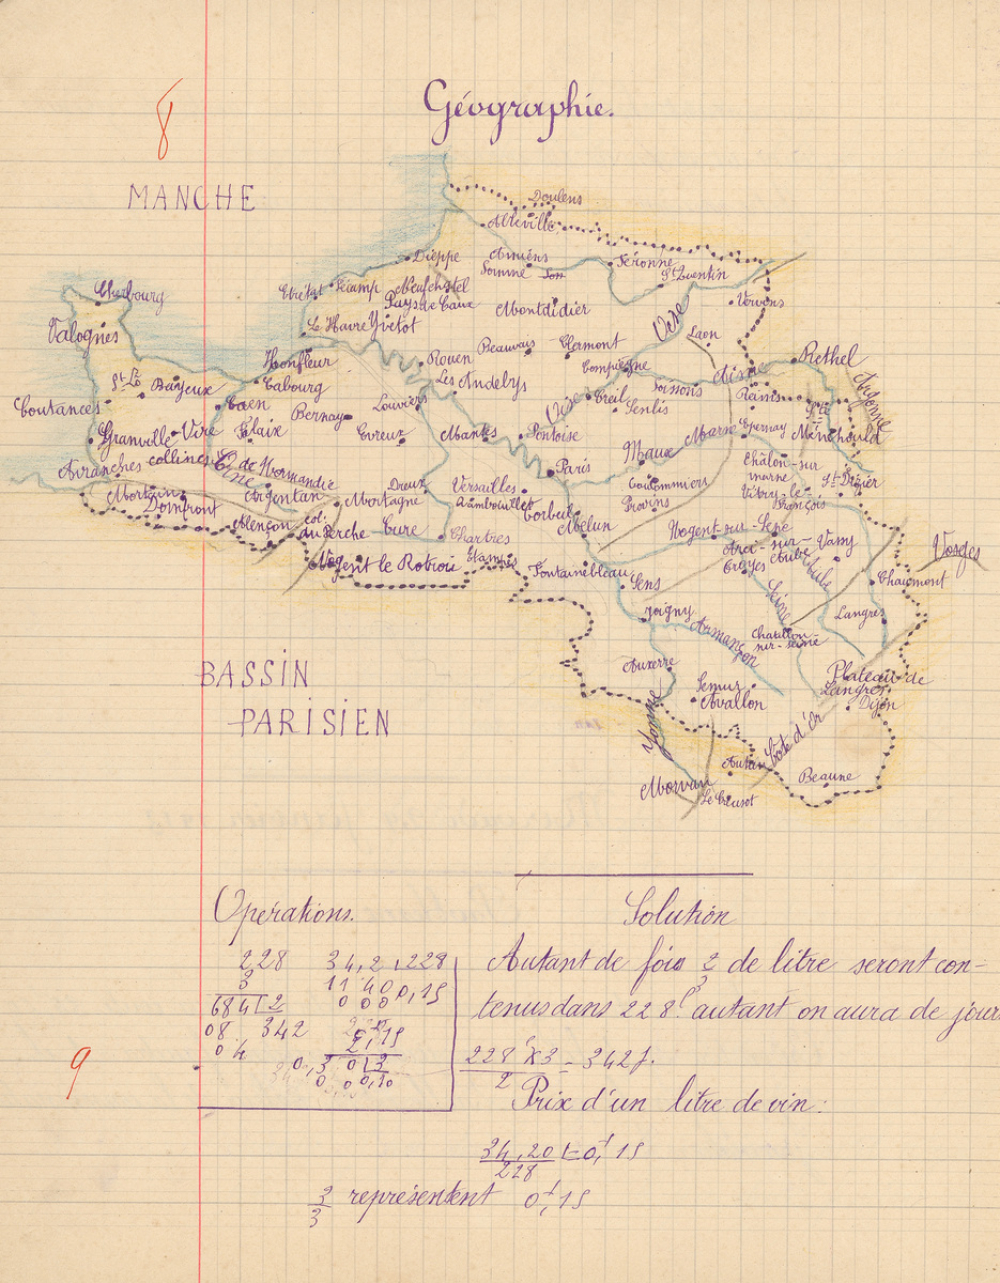 8
Géographie.
MANCHE
Doulens
Abbeville
Dieppe
Amiens
Péronne
Somme
St Quentin
Cherbourg
Etretat
Fécamp
Neufchâtel
Pays de Caux
Montdidier
Oise
Vervins
Valognes
Le Havre
Yvetot
Laon
Honfleur
Rouen
Beauvais
Clermont
Rethel
Compiègne
Aisne
Argonne
St Lô
Bayeux
Cabourg
Les Andelys
Soissons
Reims
Coutances
Caen
Bernay
Louviers
Oise
Creil
Senlis
Ste Ménéhould
Granville
Vire
Falaix
Evreux
Mantes
Pontoise
Marne
Epernay
Meaux
Avranches
collines de Normandie
Orne
Paris
Châlon-sur
marne
St Dizier
Mortain
Domfront
Argentan
Mortagne
Dreux
Versailles
Rambouillet
Coulommiers
Provins
Vitry-le-
François
Alençon
col.
du Perche
Eure
Chartres
Corbeil
Melun
Nogent-sur-Sene
Arci-sur-
Aube
Vassy
Vosges
Nogent le Rotrou
Etampes
Fontainebleau
Sens
Troyes
Aube
Chaumont
Seine
Joigny
Armançon
Langres
Chatillon-
sur-seine
Auxerre
Plateau de
Langres
Semur
Avallon
Dijon
BASSIN
PARISIEN
Yonne
Côte d'Or
Autun
Morvan
Le Creusot
Beaune
Opérations.
Solution
228 34,2 228
3 11 40 0,15
684 2 000
08 342
04
Autant de fois 2/3 de litre seront con-
tenus dans 228l. autant on aura de jours
9
228l X3 = 342j.
2
Prix d'un litre de vin:
34,20 = 0,f 15
228
2/3 représentent 0,f 15